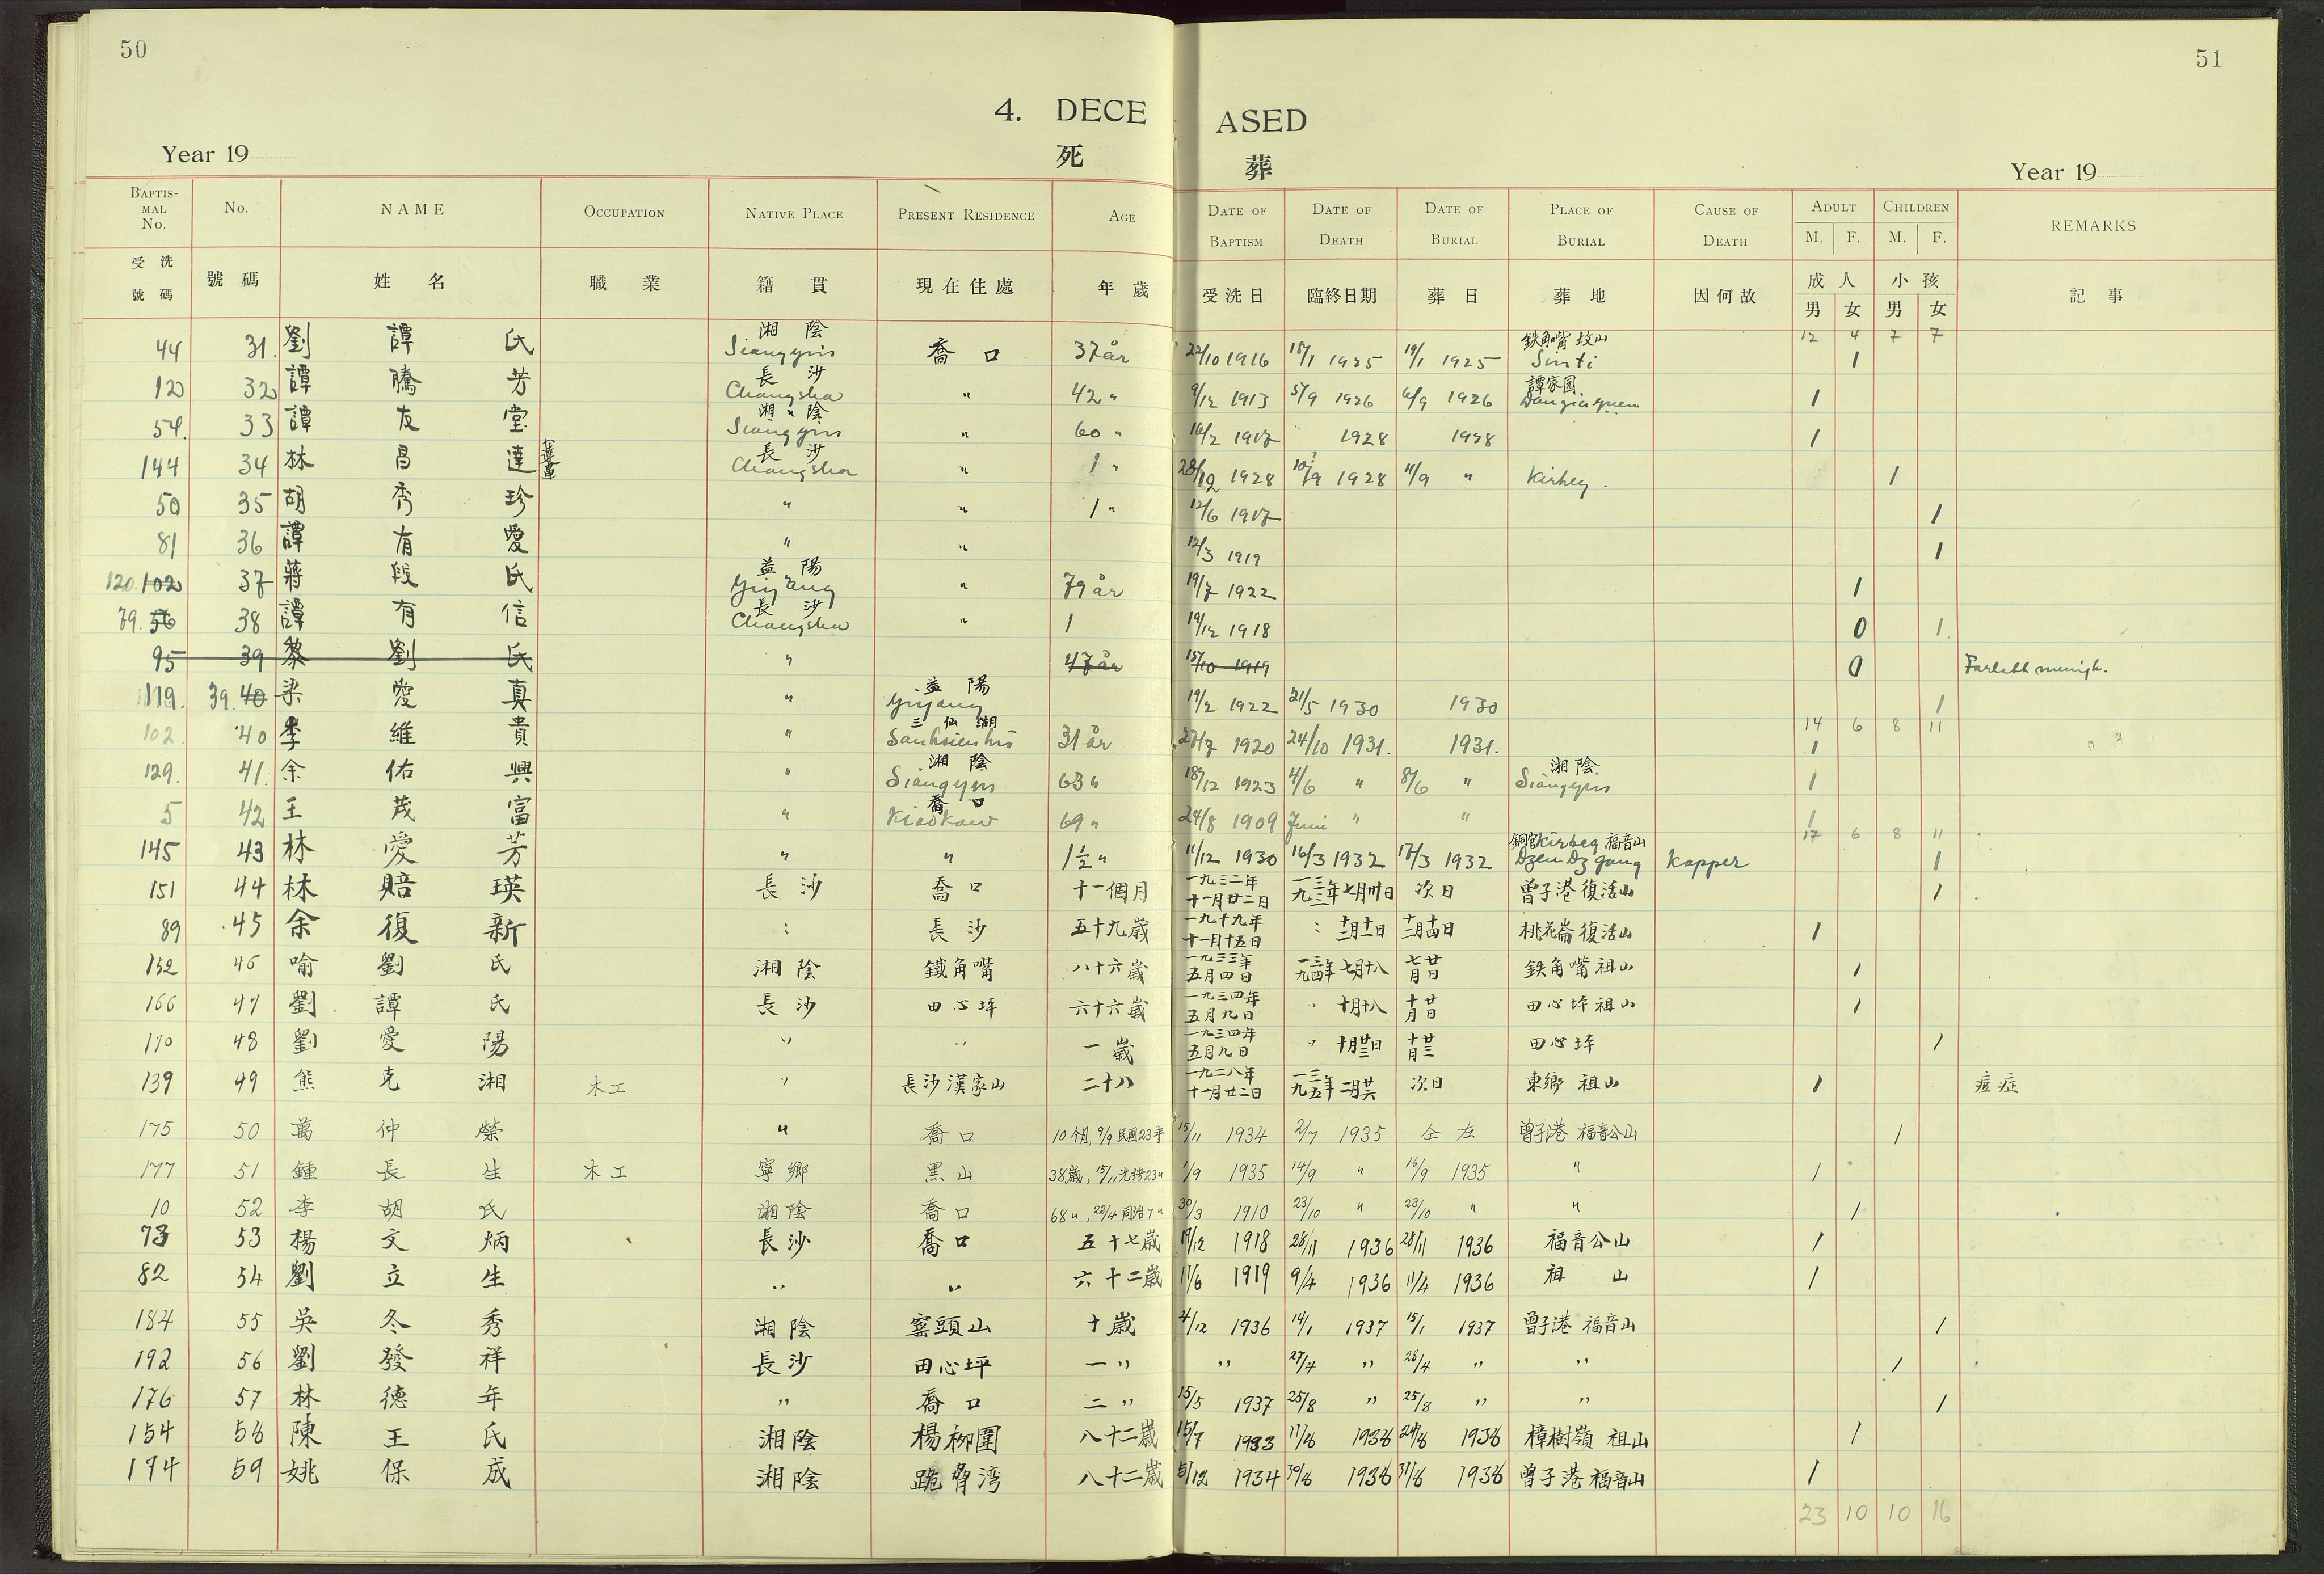 50
51
4. DECE ASED
Year 19
死 葬
Year 19
BAPTIS-MAL No. No. NAME OCCUPATION NATIVE PLACE PRESENT RESIDENCE AGE DATE OF BAPTISM DATE OF DEATH DATE OF BURIAL PLACE OF BURIAL CAUSE OF DEATH ADULT M. F. CHILDREN M. F. REMARKS
受洗號碼 號碼 姓名 職業 籍貫 現在住處 年歲 受洗日 臨終日期 葬日 葬地 因何故 成人 男 女 小孩 男 女 記事
12 4 7 7
44 31. 劉譚氏 湘陰 Siangyin 喬口 37 år 22/10 1916 18/1 1925 19/1 1925 鉄角嘴 坟山 Sinti 1
120 32 譚騰芳 長沙 Changsha " 42 " 9/12 1913 5/9 1926 6/9 1926 譚家园 1
54. 33 譚友堂 湘陰 Siangyin " 60 " 16/2 1917 1928 1928 1
144 34 林昌達 長沙 Changsha " 1 " 28/12 1928 10/9 1928 11/9 " Kirkeg. 1
50 35 胡秀珍 " " 1 " 12/6 1917 1
81 36 譚有愛 " " 12/3 1919 1
120. 102 37 蔣段氏 益陽 Yiyang " 79 år 19/7 1922 1
79. 56 38 譚有信 長沙 Changsha " 1 19/12 1918 0 1.
95 39 黎劉氏 " 47 år 15/10 1919 0 Forlatt menigh.
119. 39. 40 梁愛真 " 益陽 Yiyang 19/2 1922 21/5 1930 1930 1
14 6 8 11
102 40 李維貴 " 三仙湖 Sanhsienhu 31 år 27/7 1920 24/10 1931. 1931. 1
129. 41. 余佑興 " 湘陰 Siangyin 63 " 18/12 1923 4/6 " 8/6 " 湘陰 Siangyin 1
5 42 王茂富 " 喬口 Kiaokow 69 " 24/8 1909 Juni " " 1
17 6 8 11
145 43 林愛芳 " " 1½ " 11/12 1930 16/3 1932 17/3 1932 Kirkeg 福音山 Kopper 1
151 44 林賠瑛 長沙 喬口 十一個月 一九三二年十一月廿二日 一九三三年七月卅日 次日 曾子港復活山 1
89 45 余復新 : 長沙 五十九歲 一九十九年十一月十五日 : 桃花崙復活山 1
152 46 喻劉氏 湘陰 鐵角嘴 八十六歲 一九三三年五月四日 一九三四年七月十八 七月廿日 鉄角嘴祖山 1
166 47 劉譚氏 長沙 田心坪 六十六歲 一九三四年五月九日 " 十月十八 十月廿日 田心坪祖山 1
170 48 劉愛陽 " " 一歲 一九三四年五月九日 " 十月廿三日 十月廿三 田心坪 1
139 49 熊克湘 木工 " 長沙漢家山 二十八 一九二八年十一月廿二日 一九三五年二月廿六 次日 東鄉祖山 1 痘症
175 50 萬仲榮 " 喬口 10个月, 9/9 民國23年 15/11 1934 2/7 1935 仝左 曾子港 福音公山 1
177 51 鍾長生 木工 寧鄉 黑山 38歲, 15/11 光緒23" 1/9 1935 14/9 " 16/9 1935 " 1
10 52 李胡氏 湘陰 喬口 68", 22/4 同治7" 30/3 1910 23/10 " 23/10 " " 1
73 53 楊文炳 長沙 喬口 五十七歲 19/12 1918 28/11 1936 28/11 1936 福音公山 1
82 54 劉立生 " " 六十二歲 11/6 1919 9/4 1936 11/4 1936 祖山 1
184 55 吳冬秀 湘陰 窰頭山 十歲 4/12 1936 14/1 1937 15/1 1937 曾子港 福音山 1
192 56 劉發祥 長沙 田心坪 一" " 27/4 " 28/4 " " 1
176 57 林德年 " 喬口 二" 15/5 1937 25/8 " 25/8 " " 1
154 58 陳王氏 湘陰 楊柳圍 八十二歲 15/7 1933 17/8 1938 24/8 1938 樟樹嶺 祖山 1
174 59 姚保成 湘陰 八十二歲 5/12 1934 30/8 1938 31/8 1938 曾子港福音山 1
23 10 10 16